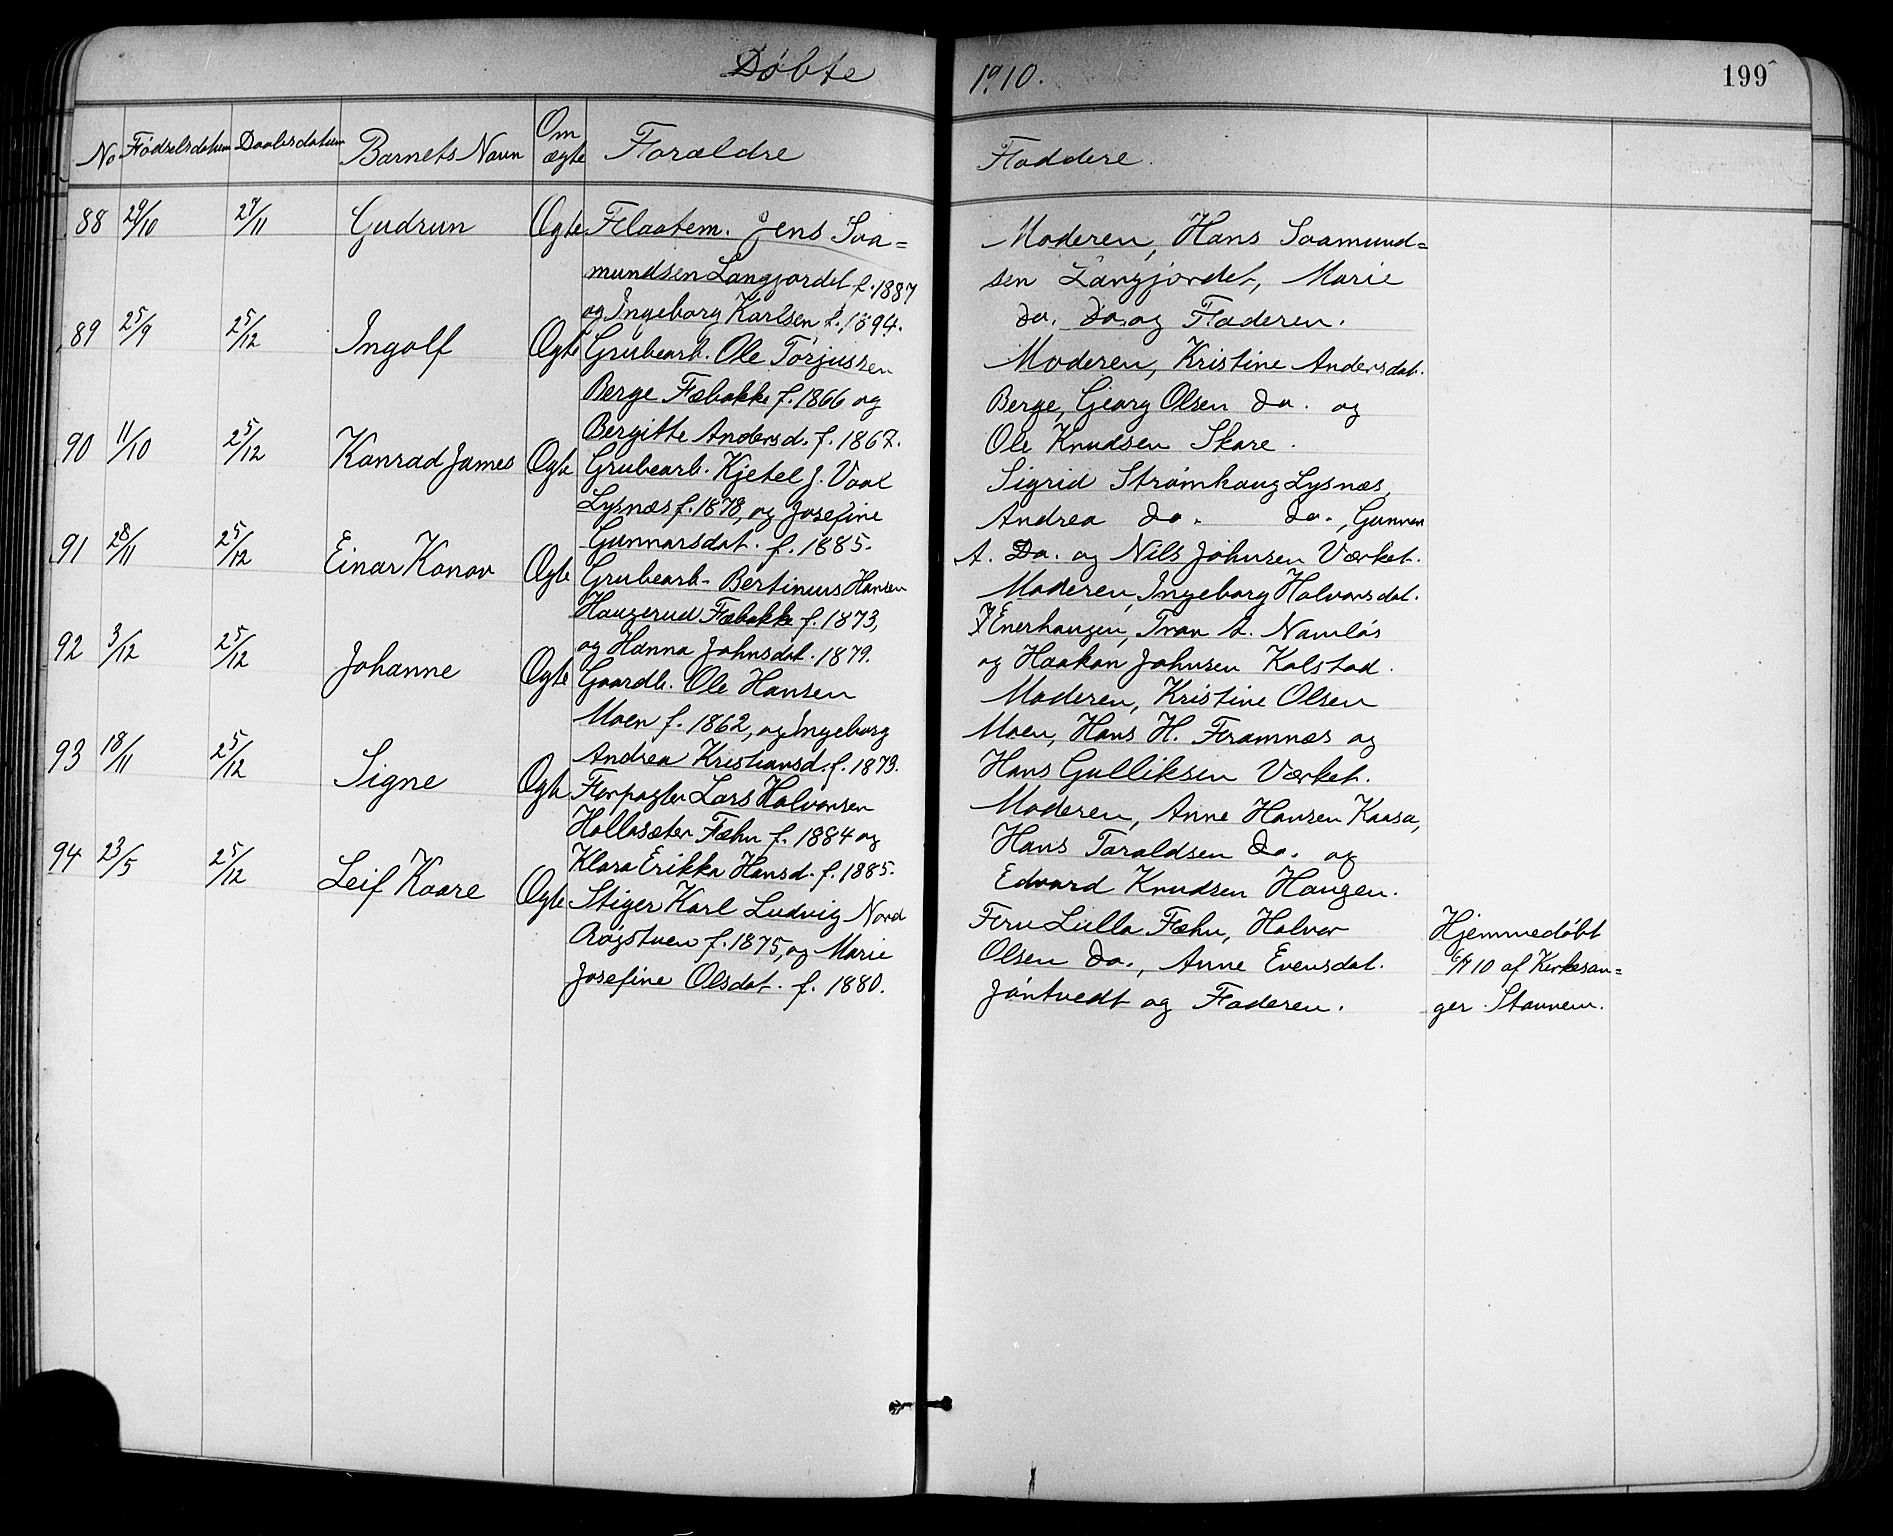 Døbte 1910. 199
No Fødselsdatum Daabsdatum Barnets Navn Om ægte Forældre Faddere.
88 29/10 27/11 Gudrun Ægte Flaatem. Jens Saa-
mundsen Langjordet f. 1887
og Ingeborg Karlsen f. 1894.
Moderen, Hans Saamund-
sen Langjordet, Marie
do. do. og Faderen.
89 25/9 25/12 Ingolf Ægte Grubearb. Ole Torjussen
Berge Fæbakke f. 1866 og
Bergitte Andersd. f. 1867.
Moderen, Kristine Andersdat.
Berge, Georg Olsen do. og
Ole Knudsen Skare.
90 11/10 25/12 Konrad James Ægte Grubearb. Kjetel J. Vaal
Lysnæs f. 1878, og Josefine
Gunnarsdat. f. 1885.
Sigrid Strømhaug Lysnæs,
Andrea do. do., Gunnar
A. Do. og Nils Johnsen Værket.
91 28/11 25/12 Einar Konov Ægte Grubearb. Bertinius Hansen
Haugerud Fæbakke f. 1873,
og Hanna Johnsdat. 1879.
Moderen, Ingeborg Halvorsdat.
Enerhaugen, Ivar A. Namløs
og Haakon Johnsen Kolstad.
92 3/12 25/12 Johanne Ægte Gaardb. Ole Hansen
Moen f. 1862, og Ingeborg
Andrea Kristiansd. f. 1873.
Moderen, Kristine Olsen
Moen, Hans H. Framnæs og
Hans Gulliksen Værket.
93 18/11 25/12 Signe Ægte Forpagter Lars Halvorsen
Hollasæter Fæhn f. 1884 og
Klara Erikka Hansd. f. 1885.
Moderen, Anne Hansen Kaasa,
Hans Taraldsen do. og
Edvard Knudsen Haugen.
94 23/5 25/12 Leif Kaare Ægte Stiger Karl Ludvig Nord
Røgstuen f. 1875, og Marie
Josefine Olsdat. f. 1880.
Fru Lulla Fæhn, Halvor
Olsen do., Anne Evensdat.
Jøntvedt og Faderen.
Hjemmedøbt
10 af Kirkesan-
ger Stavnem.